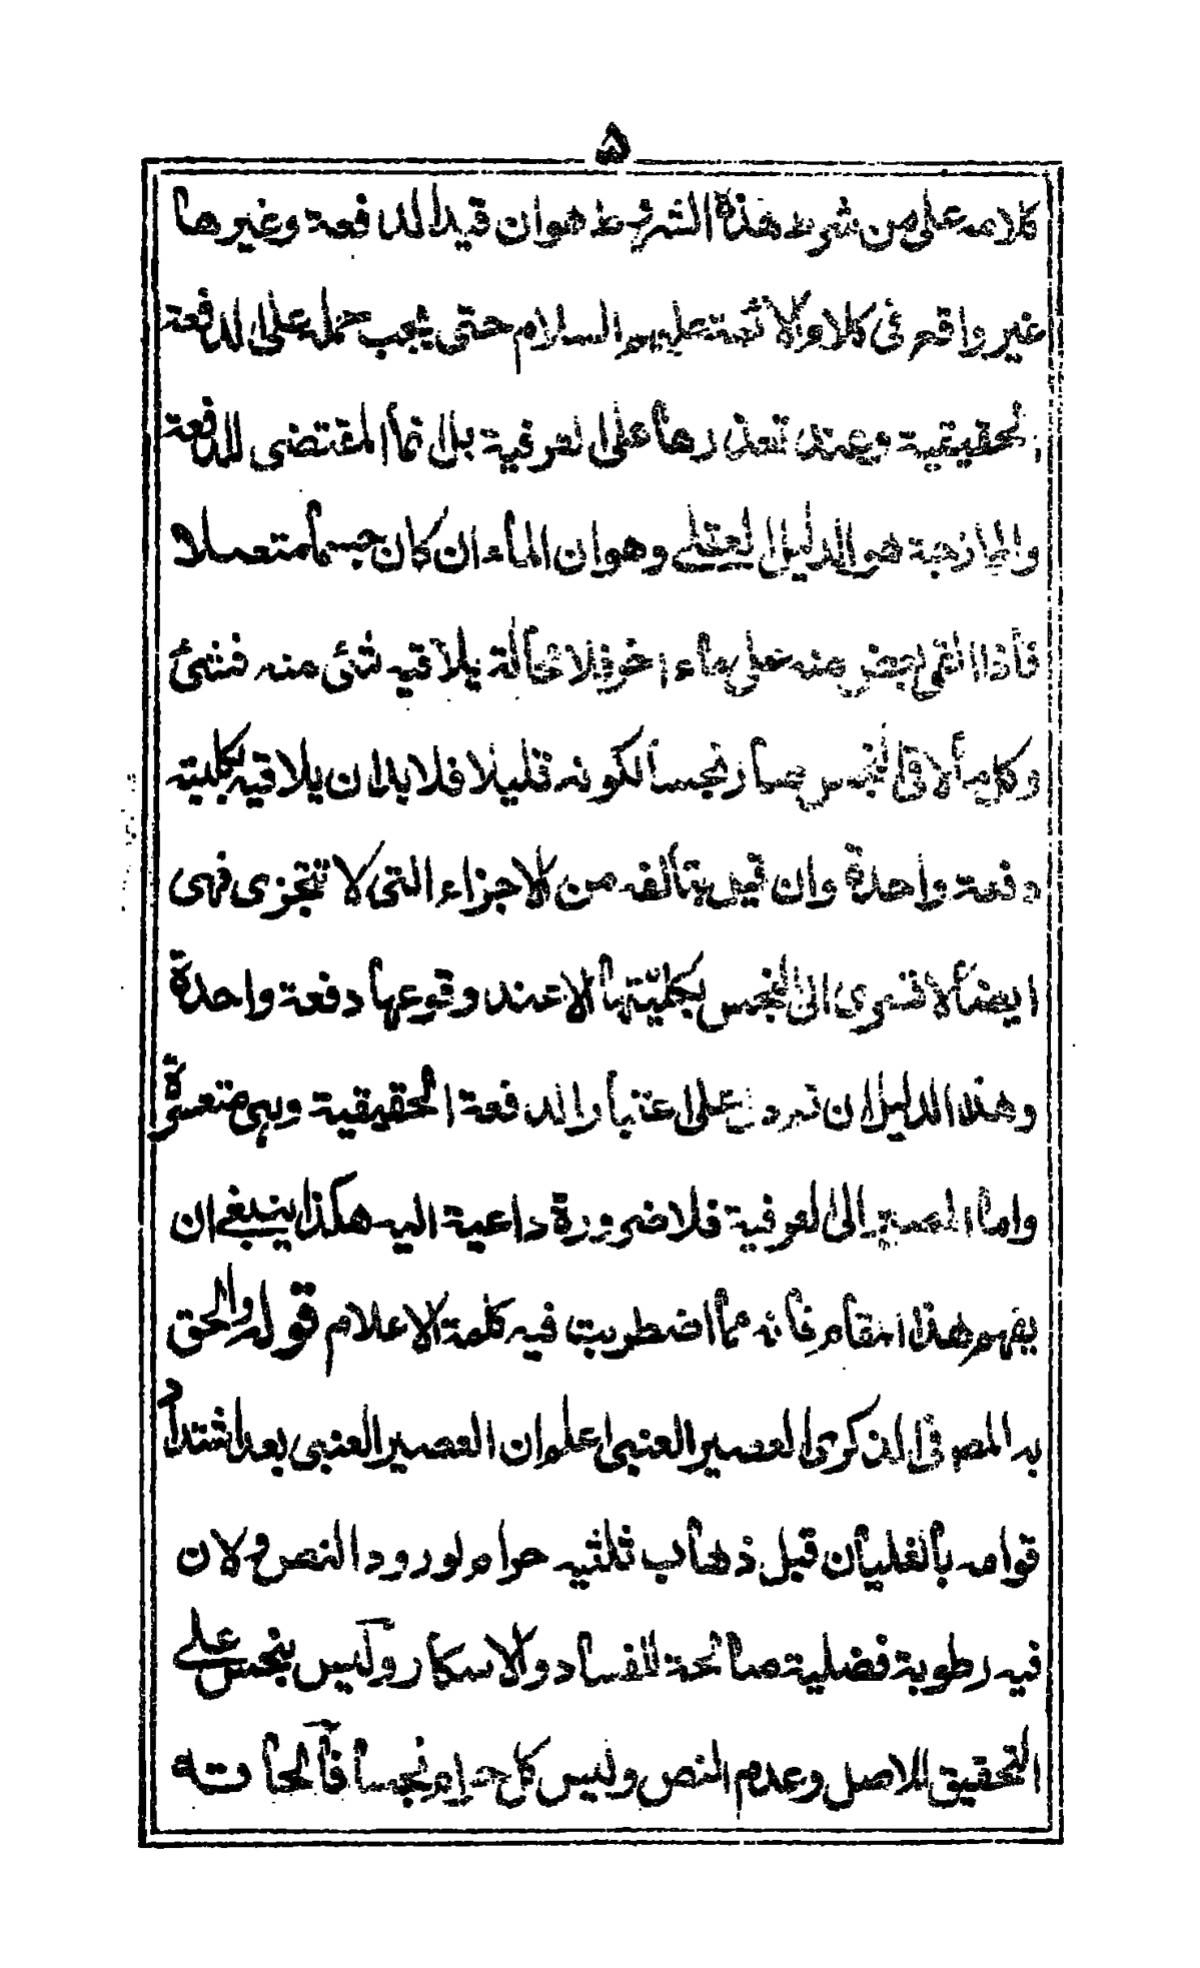 ۵
كلامه على من شرط هذة الشروط هوان قيد الدفعة وغيرها
غير واقعه فى كلام الائمة عليهم السلام حتى يجب حمله على الدفعة
الحقيقية وعند تعذرها على العرفية بل انما المقتضى للدفعة
والممازجة هو الدليل العقلى وهو ان الماء ان كان جسما متصلا
فاذا التقى بعض منه على ماء اخر فلا محالة يلاقيه شئ منه فشئ
وكل ما لاقى النجس صار نجسا لكونه قليلا فلابد ان يلاقيه بكليته
دفعة واحدة وان قيل بتألفه من الاجزاء التى لا تتجزى فهى
ايضا لا تسرى الى النجس بكليتها الا عند وقوعها دفعة واحدة
وهذا الدليل ان تم دل على اعتبار الدفعة الحقيقية وهى متعسرة
واما المصير الى العرفية فلا ضرورة داعية اليه هكذا ينبغى ان
يفهم هذا المقام فانه مما اضطربت فيه كلمة الاعلام قوله والحق
به المصـ فى الذكرى العصير العنبى اعلم ان العصير العنبى بعد اشتداد
قوامه بالغليان قبل ذهاب ثلثيه حرام لورود النص و لان
فيه رطوبة فضلية صالحة للفساد و الاسكار و ليس بنجس على
التحقيق للاصل وعدم النص وليس كل حرام نجسا فالحاقه